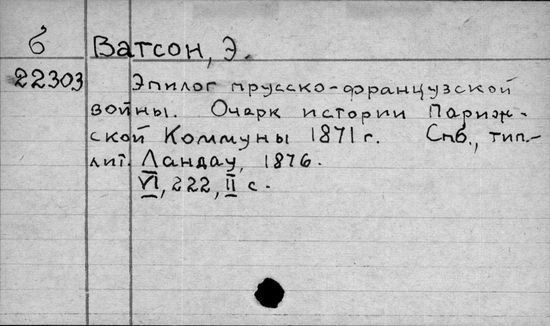 б Ватсон, Э.
22303 Эпилог прусско-французской
войны. Очерк истории Париж-
ской Коммуны 1871 г. Спб., тип.-
лит. Ландау, 1876.
VI, 222, II с.